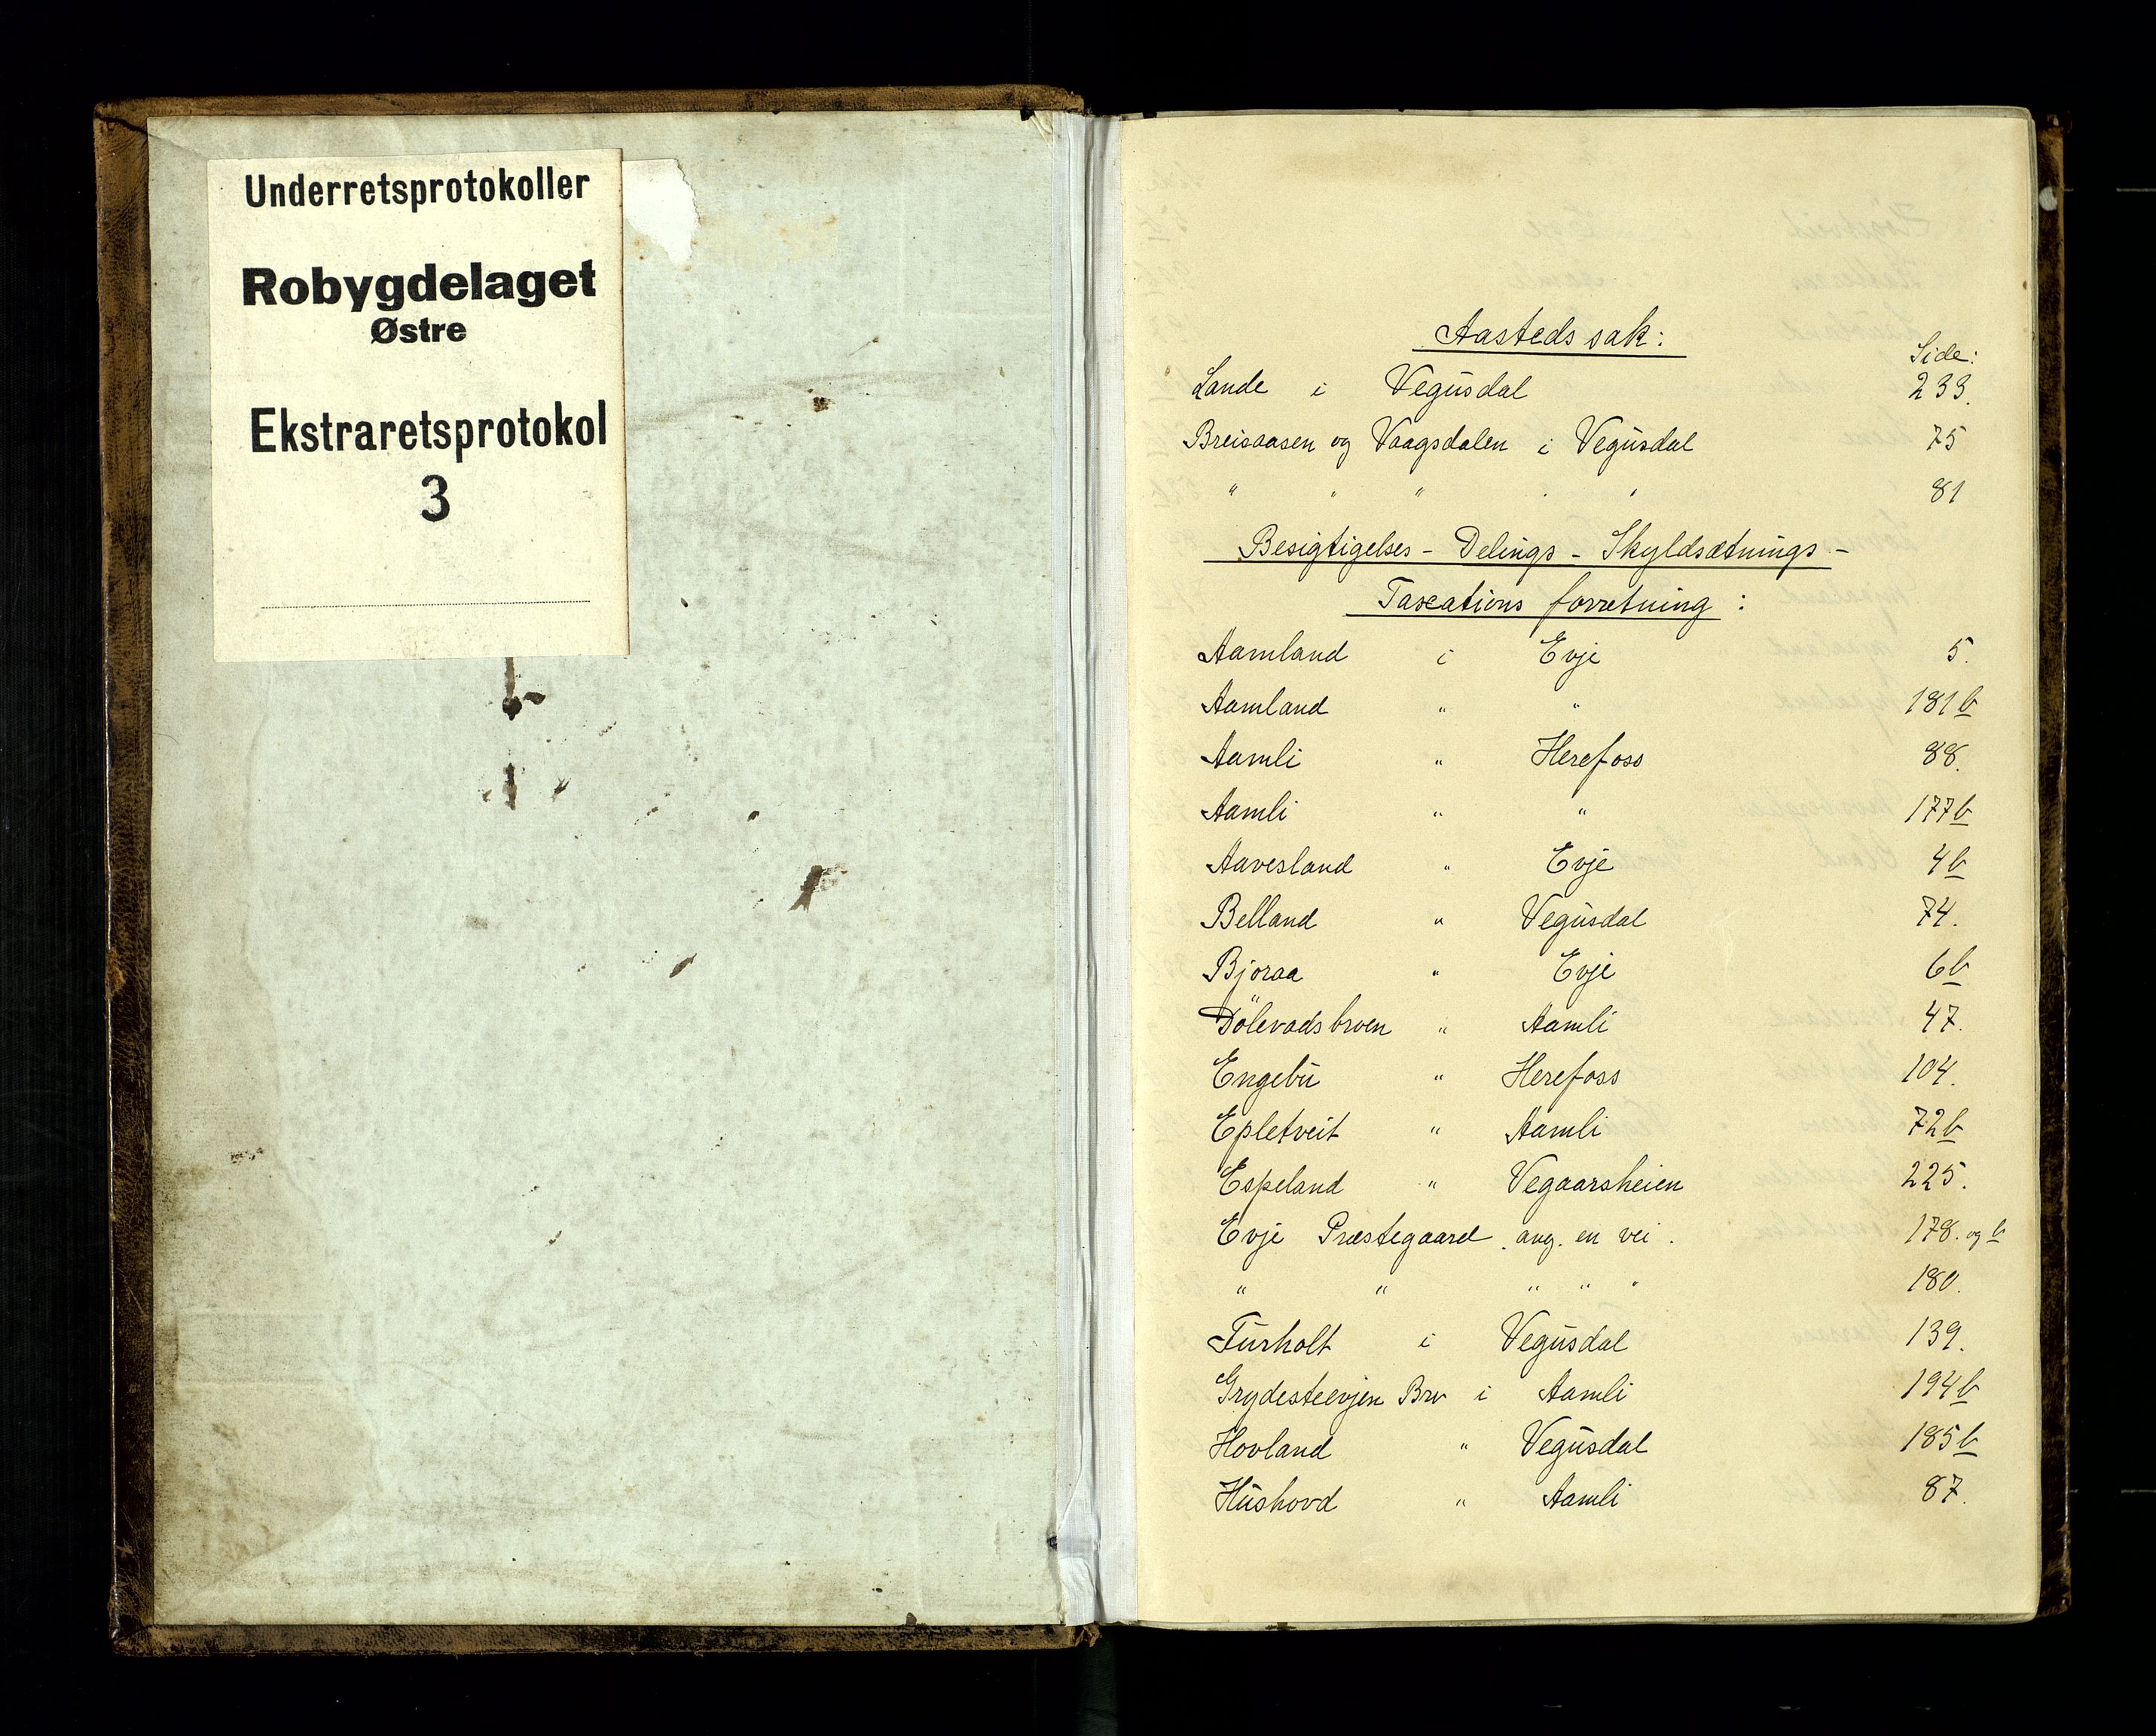 Underretsprotokoller
Robygdelaget
Østre
Ekstraretsprotokol
3
Aasteds sak:
Side:
Lande i Vegusdal 233.
Breisaasen og Vaagsdalen i Vegusdal 75
" " " " " 81
Besigtigelses - Delings - Skyldsætnings -
Taxations forretning :
Aamland i Evje 5.
Aamland " " 181 b
Aamli " Herefoss 88.
Aamli " " 177 b
Aavesland " Evje 4 b
Belland " Vegusdal 74.
Bjoraa " Evje 6 b
Dölevadsbroen " Aamli 47.
Engebu " Herefoss 104.
Epletveit " Aamli 72 b
Espeland " Vegaarsheien 225.
Evje Præstegaard. ang. en vei. 178. og b
" " " " " 180.
Furholt i Vegusdal 139.
Grydesteevjen Bro i Aamli 194 b
Hovland " Vegusdal 185 b
Hushovd " Aamli 87.